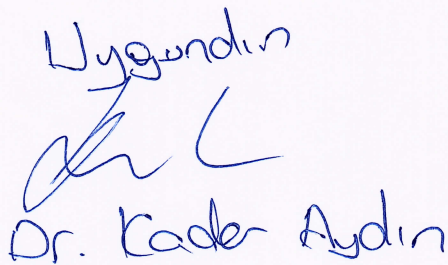 Uygundur
Dr. Kader Aydın